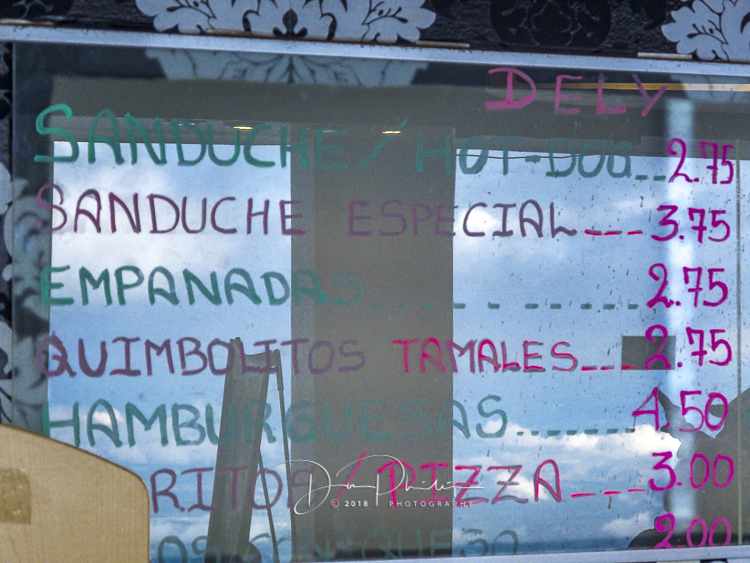 DELY
SANDUCHE / HOT-DOG__2.75
SANDUCHE ESPECIAL---3.75
EMPANADAS... - - - - - - 2.75
QUIMBOLITOS TAMALES---2.75
HAMBURGUESAS........4.50
/ PIZZA---3.00
QUESO 2.00
© 2018 PHOTOGRAPHY